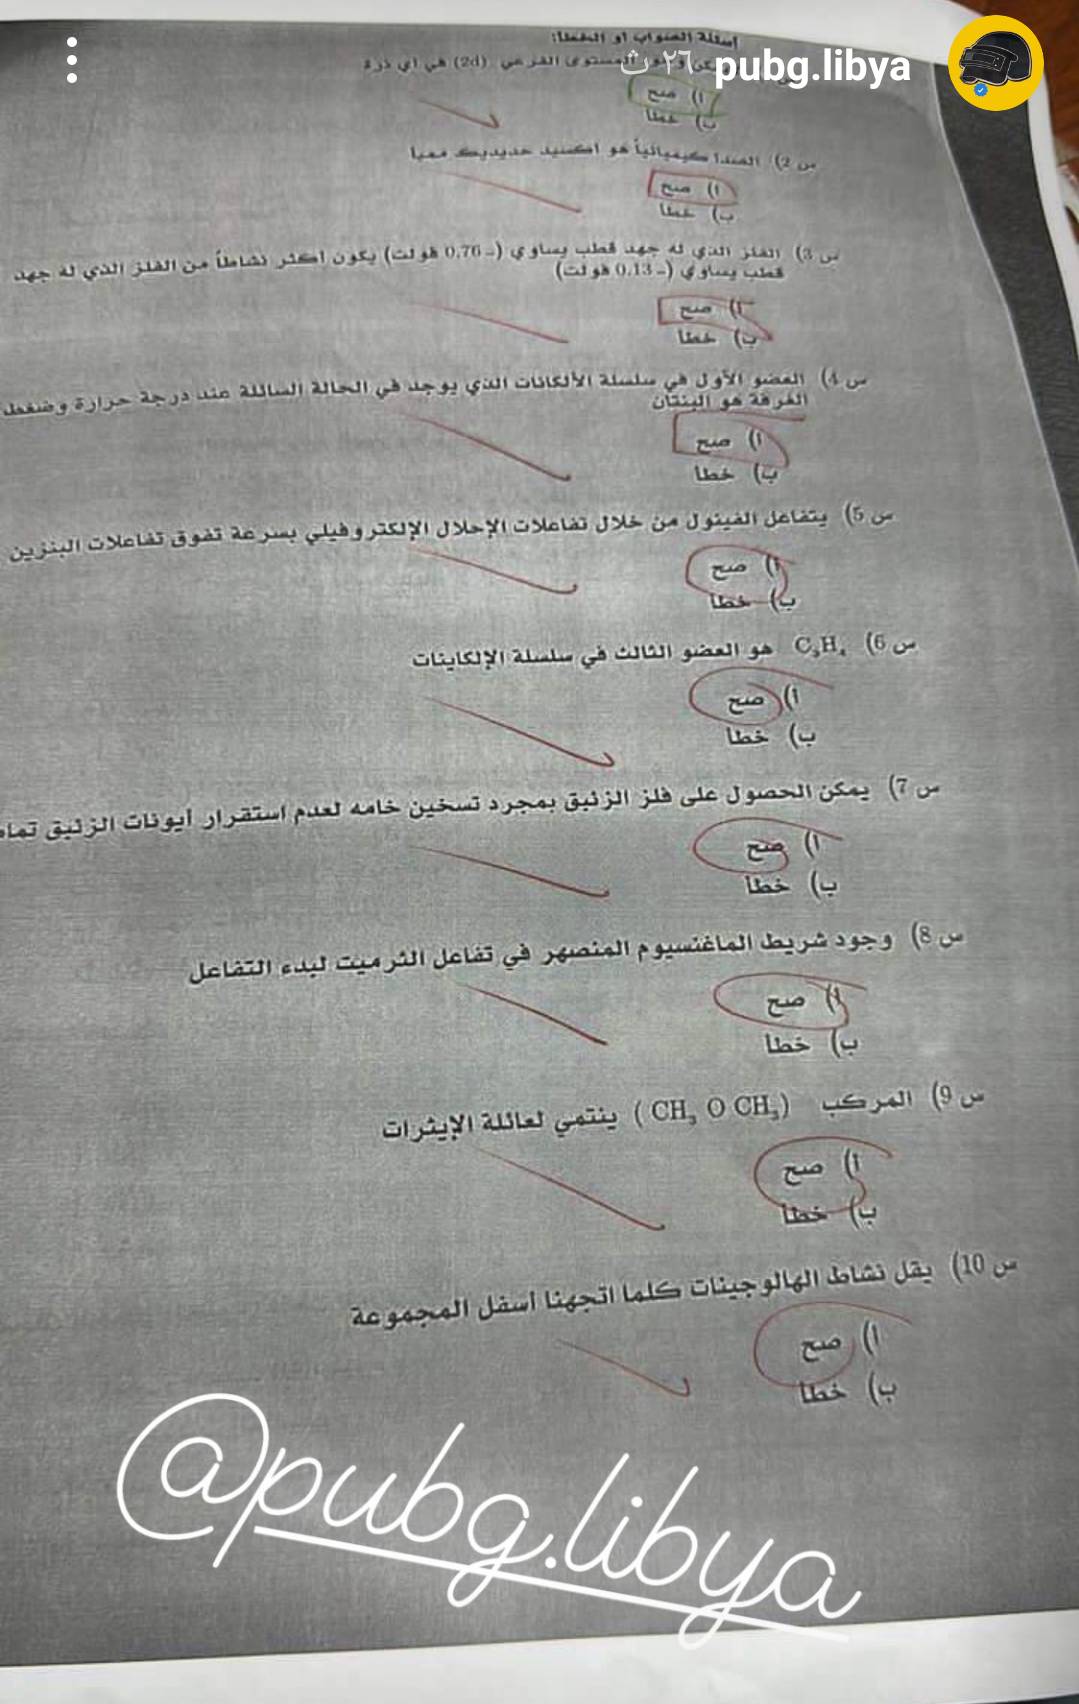 pubg.libya ٢٦ ث
أسئلة الصواب أو الخطأ:
المستوى الفرعي (2d) في أي ذرة
أ) صح
ب) خطأ
س 2) الصدأ كيميائياً هو أكسيد حديديك
أ) صح
ب) خطأ
س 3) الفلز الذي له جهد قطب يساوي (-0.76 فولت) يكون أكثر نشاطاً من الفلز الذي له جهد
قطب يساوي (-0.13 فولت)
أ) صح
ب) خطأ
س 4) العضو الأول في سلسلة الألكانات الذي يوجد في الحالة السائلة عند درجة حرارة وضغط
الغرفة هو البنتان
أ) صح
ب) خطأ
س 5) يتفاعل الفينول من خلال تفاعلات الإحلال الإلكتروفيلي بسرعة تفوق تفاعلات البنزين
أ) صح
ب) خطأ
س 6) C₃H₄ هو العضو الثالث في سلسلة الإلكاينات
أ) صح
ب) خطأ
س 7) يمكن الحصول على فلز الزئبق بمجرد تسخين خامه لعدم استقرار أيونات الزئبق
أ) صح
ب) خطأ
س 8) وجود شريط الماغنسيوم المنصهر في تفاعل الثرميت لبدء التفاعل
أ) صح
ب) خطأ
س 9) المركب (CH₃ O CH₃) ينتمي لعائلة الإيثرات
أ) صح
ب) خطأ
س 10) يقل نشاط الهالوجينات كلما اتجهنا أسفل المجموعة
أ) صح
ب) خطأ
@pubg.libya